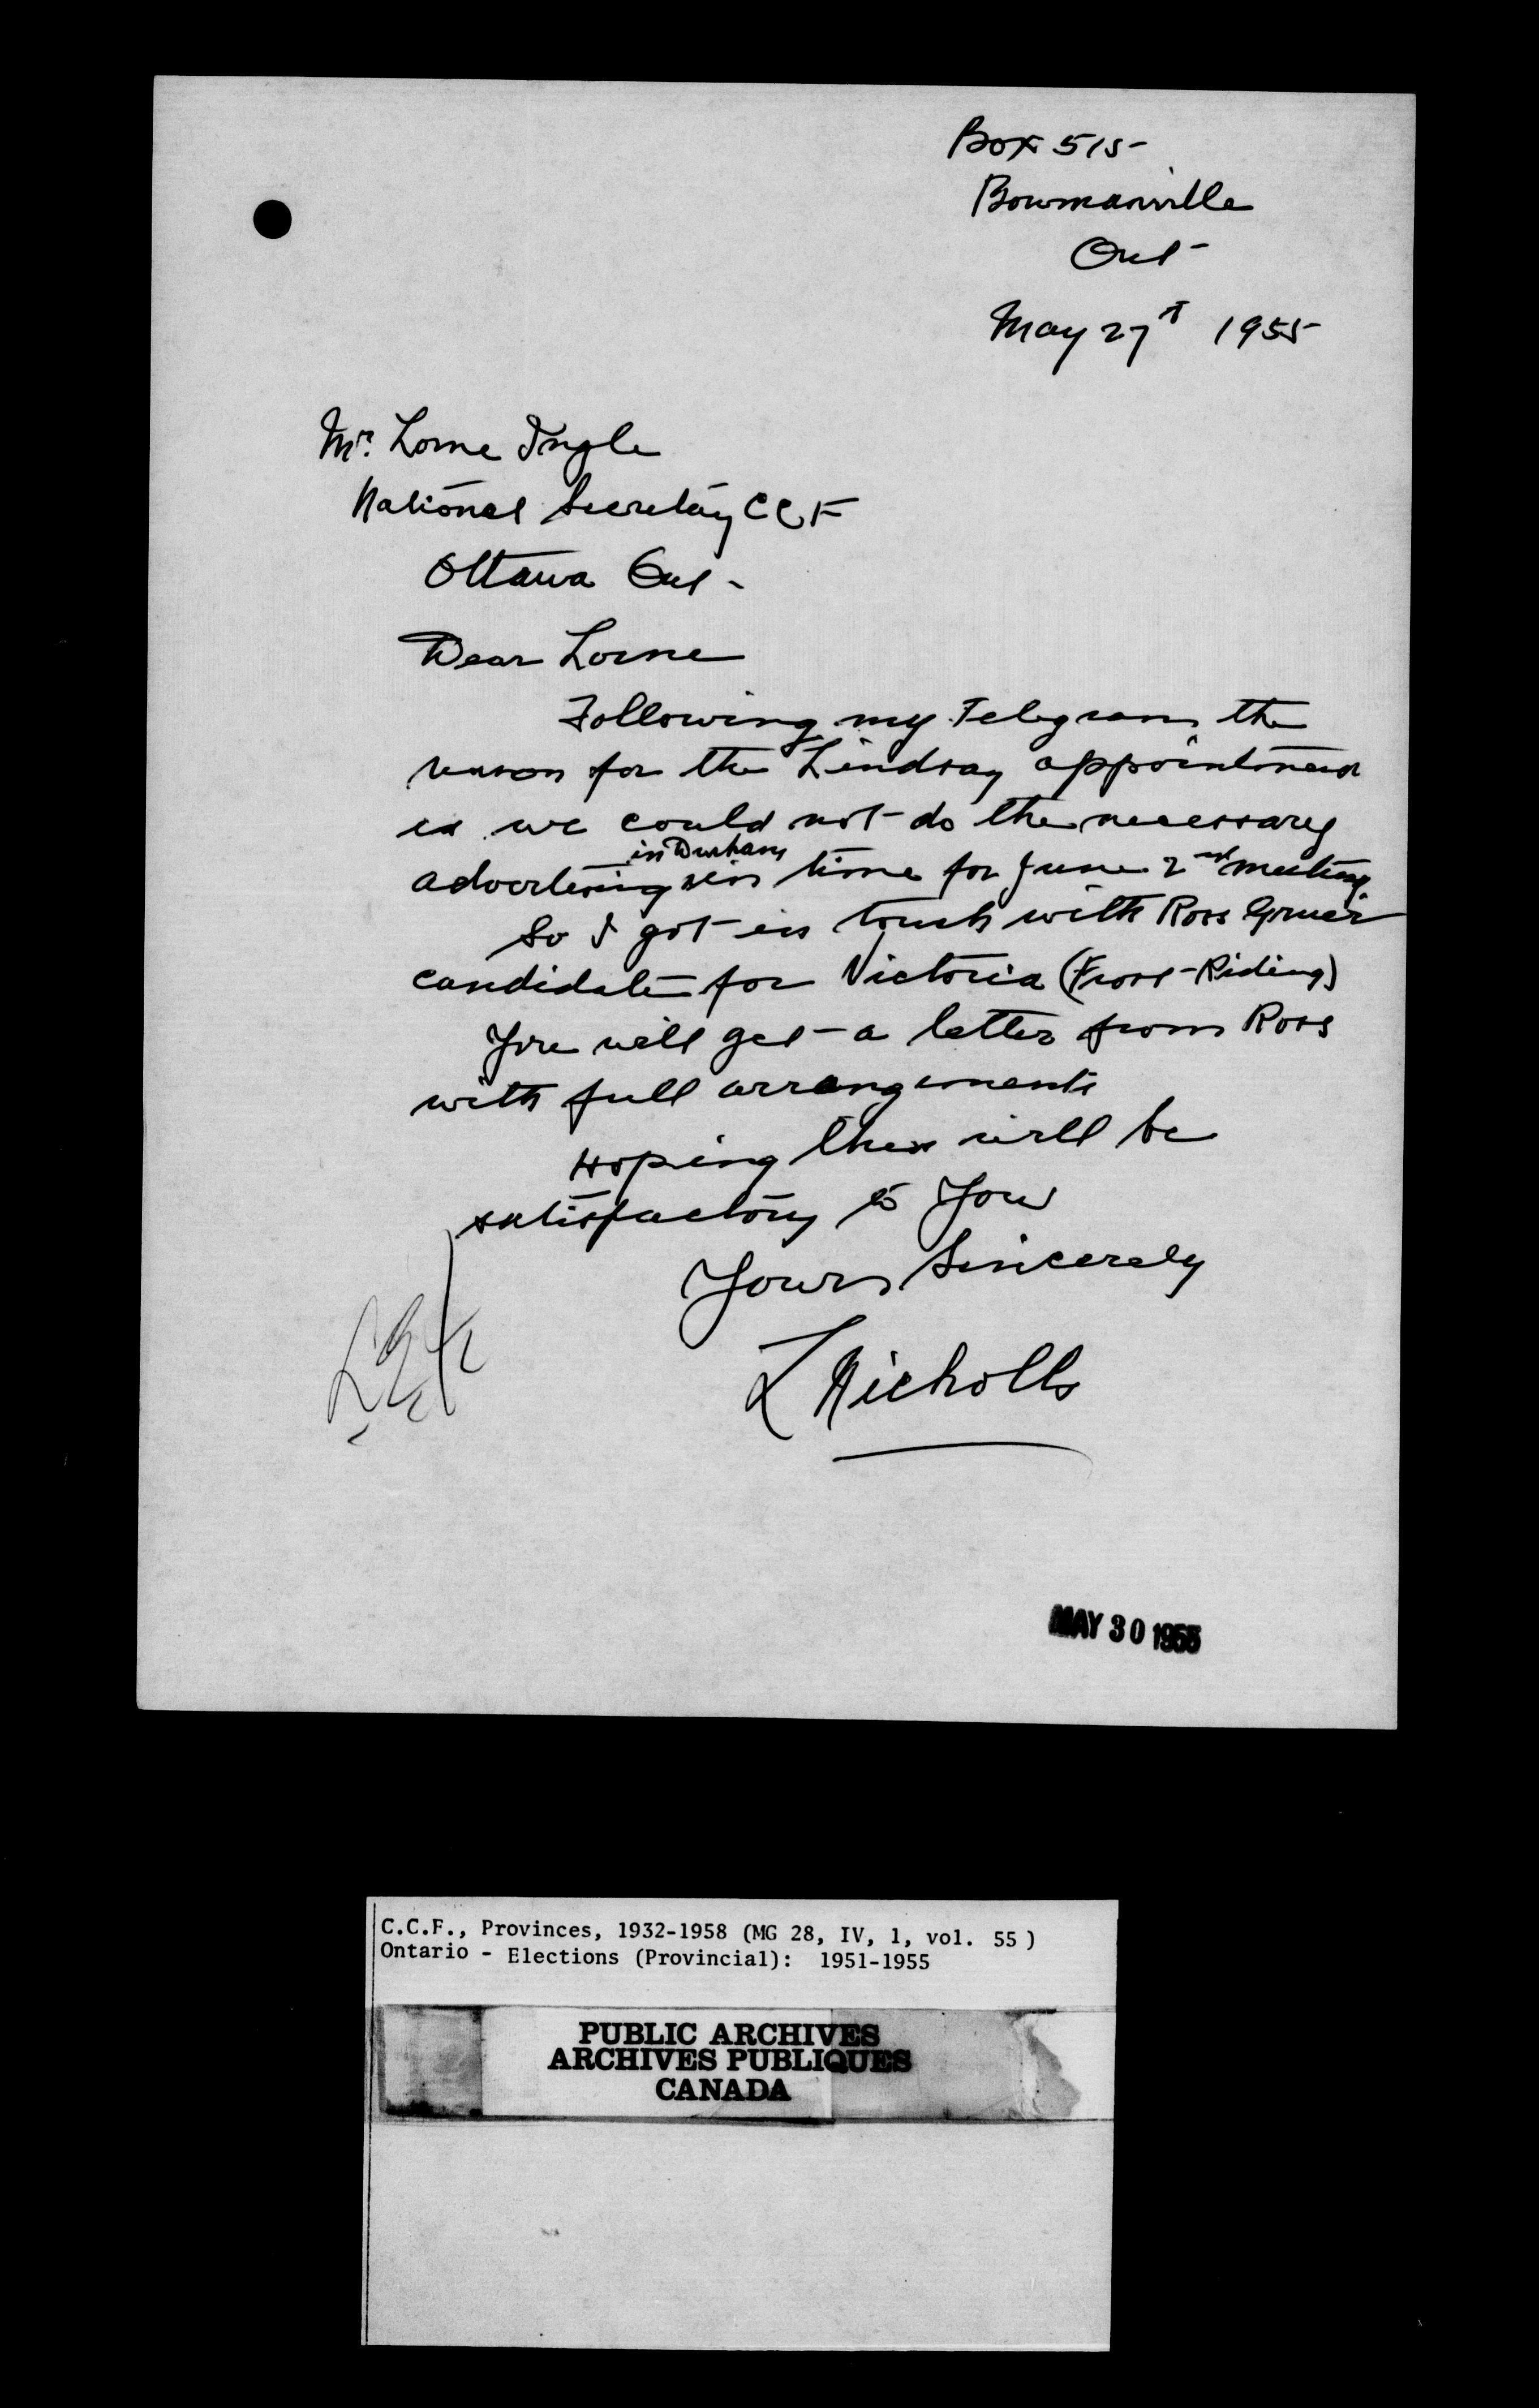 Box 515
Bowmanville
Ont
May 27th 1955
Mr. Lorne Ingle
National Secretary CCF
Ottawa Ont.
Dear Lorne
Following my Telegram the
reason for the Lindsay appointment
is we could not do the necessary
in Durham
advertising in time for June 2nd meeting.
So I got in touch with Ross
candidate for Victoria (Frost-Riding)
You will get a letter from Ross
with full arrangements
Hoping this will be
satisfactory to You
Yours Sincerely
L Nicholls
MAY 30 1955
C.C.F., Provinces, 1932-1958 (MG 28, IV, 1, vol. 55)
Ontario - Elections (Provincial): 1951-1955
PUBLIC ARCHIVES
ARCHIVES PUBLIQUES
CANADA